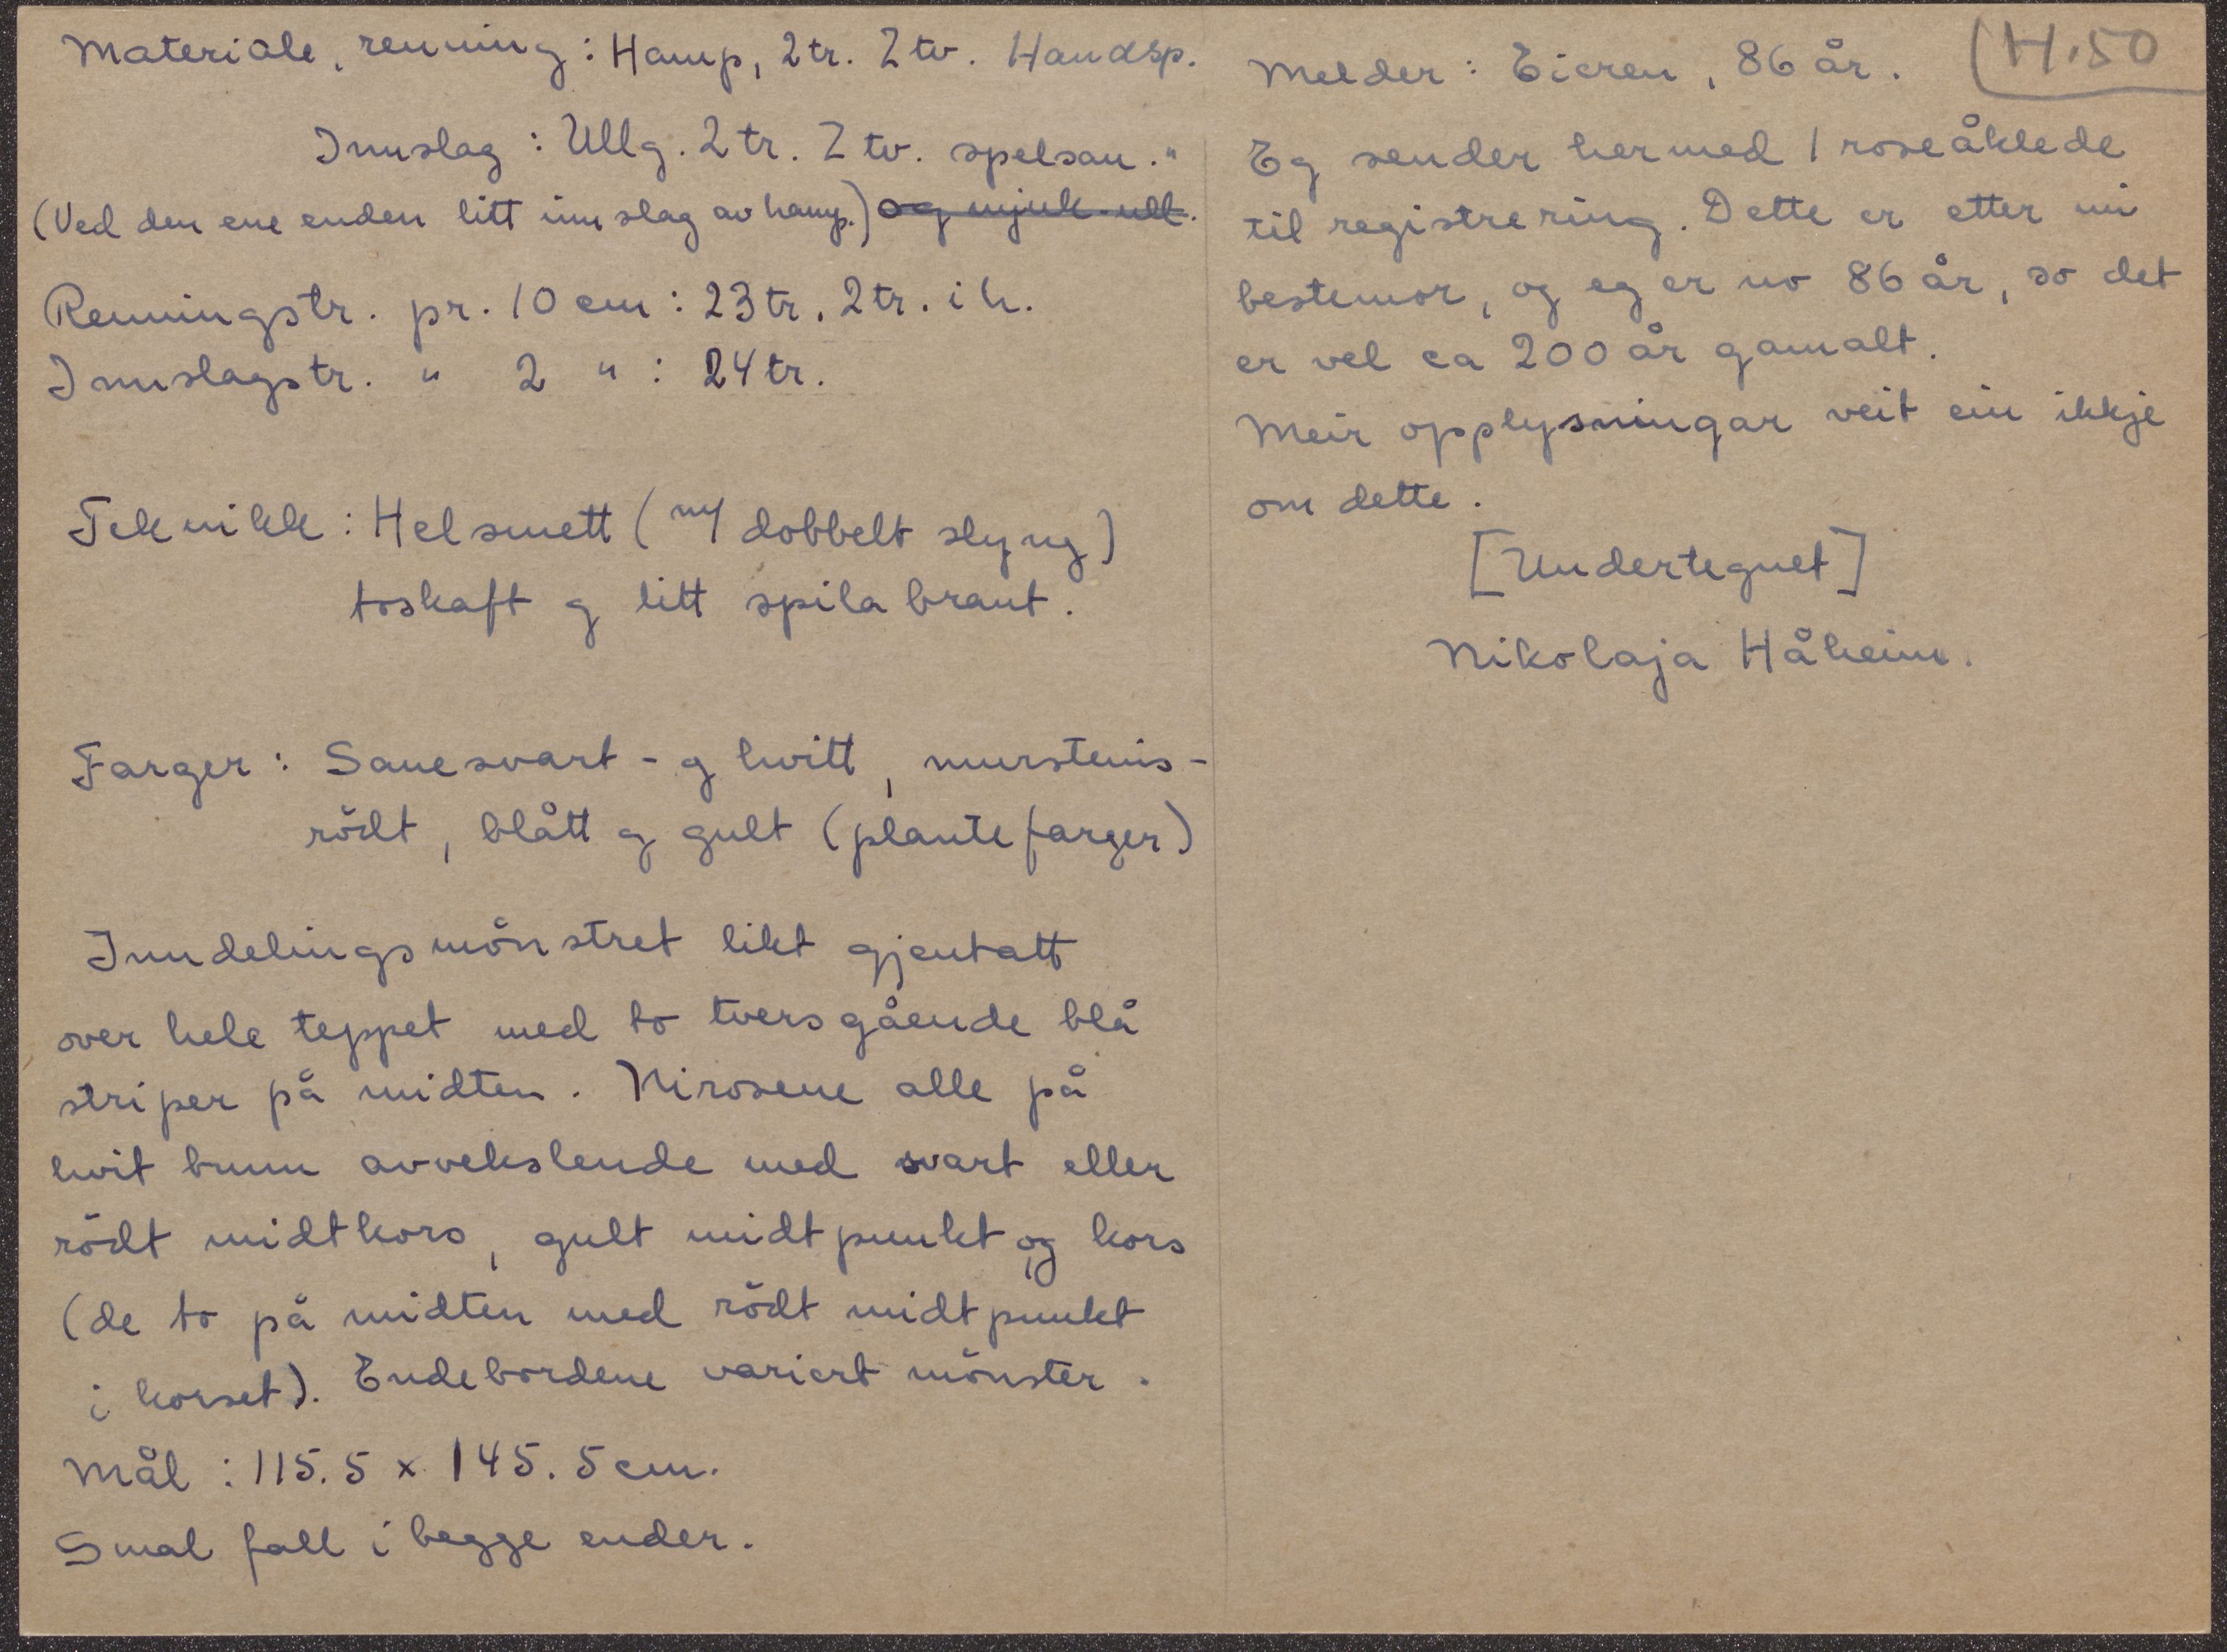 Materiale, renning: Hamp, 2 tr. Z tv. Handsp.
Innslag: Ullg. 2 tr. Z tv. spelsau. "
(Ved den ene enden litt innslag av hamp.) og mjuk ull.
Renningstr. pr. 10 cm: 23 tr. 2 tr. i h.
Innslagstr. " 2 ": 24 tr.
Teknikk: Helsmett (m/ dobbelt slyng)
toskaft og litt spilabraut.
Farger: Sauesvart- og hvitt, murstens-
rödt, blått og gult (plantefarger)
Inndelingsmönstret likt gjentatt
over hele teppet med to tversgående blå
striper på midten. Nirosene alle på
hvit bunn avvekslende med svart eller
rödt midtkors, gult midtpunkt og kors
(de to på midten med rödt midtpunkt
i korset). Endebordene variert mönster.
Mål: 115.5 x 145.5 cm.
Smal fall i begge ender.
H.50
Melder: Eieren, 86 år.
Eg sender hermed 1 roseåklede
til registrering. Dette er etter mi
bestemor, og eg er no 86 år, so det
er vel ca 200 år gamalt.
Meir opplysningar veit ein ikkje
om dette.
[Undertegnet]
Nikolaja Håheim.